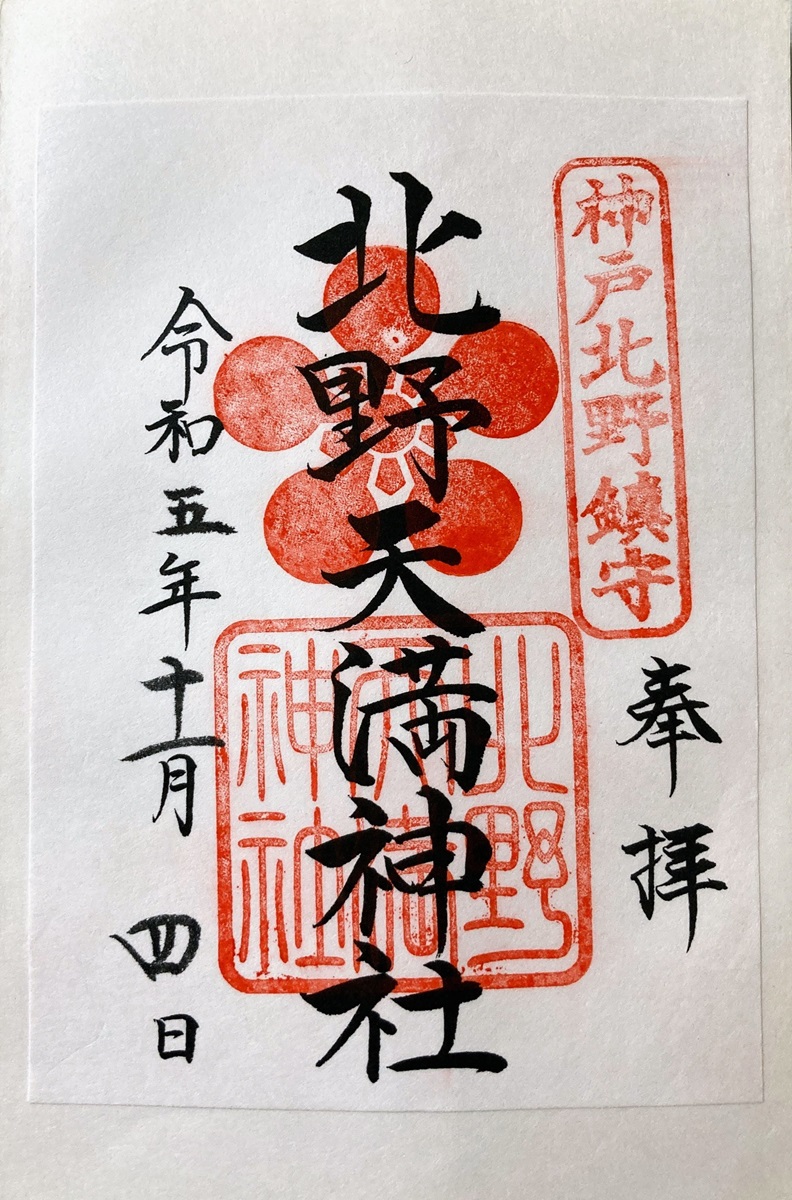 神戸北野鎮守
奉拝
北野天満神社
北野
天満
神社
令和五年十一月四日